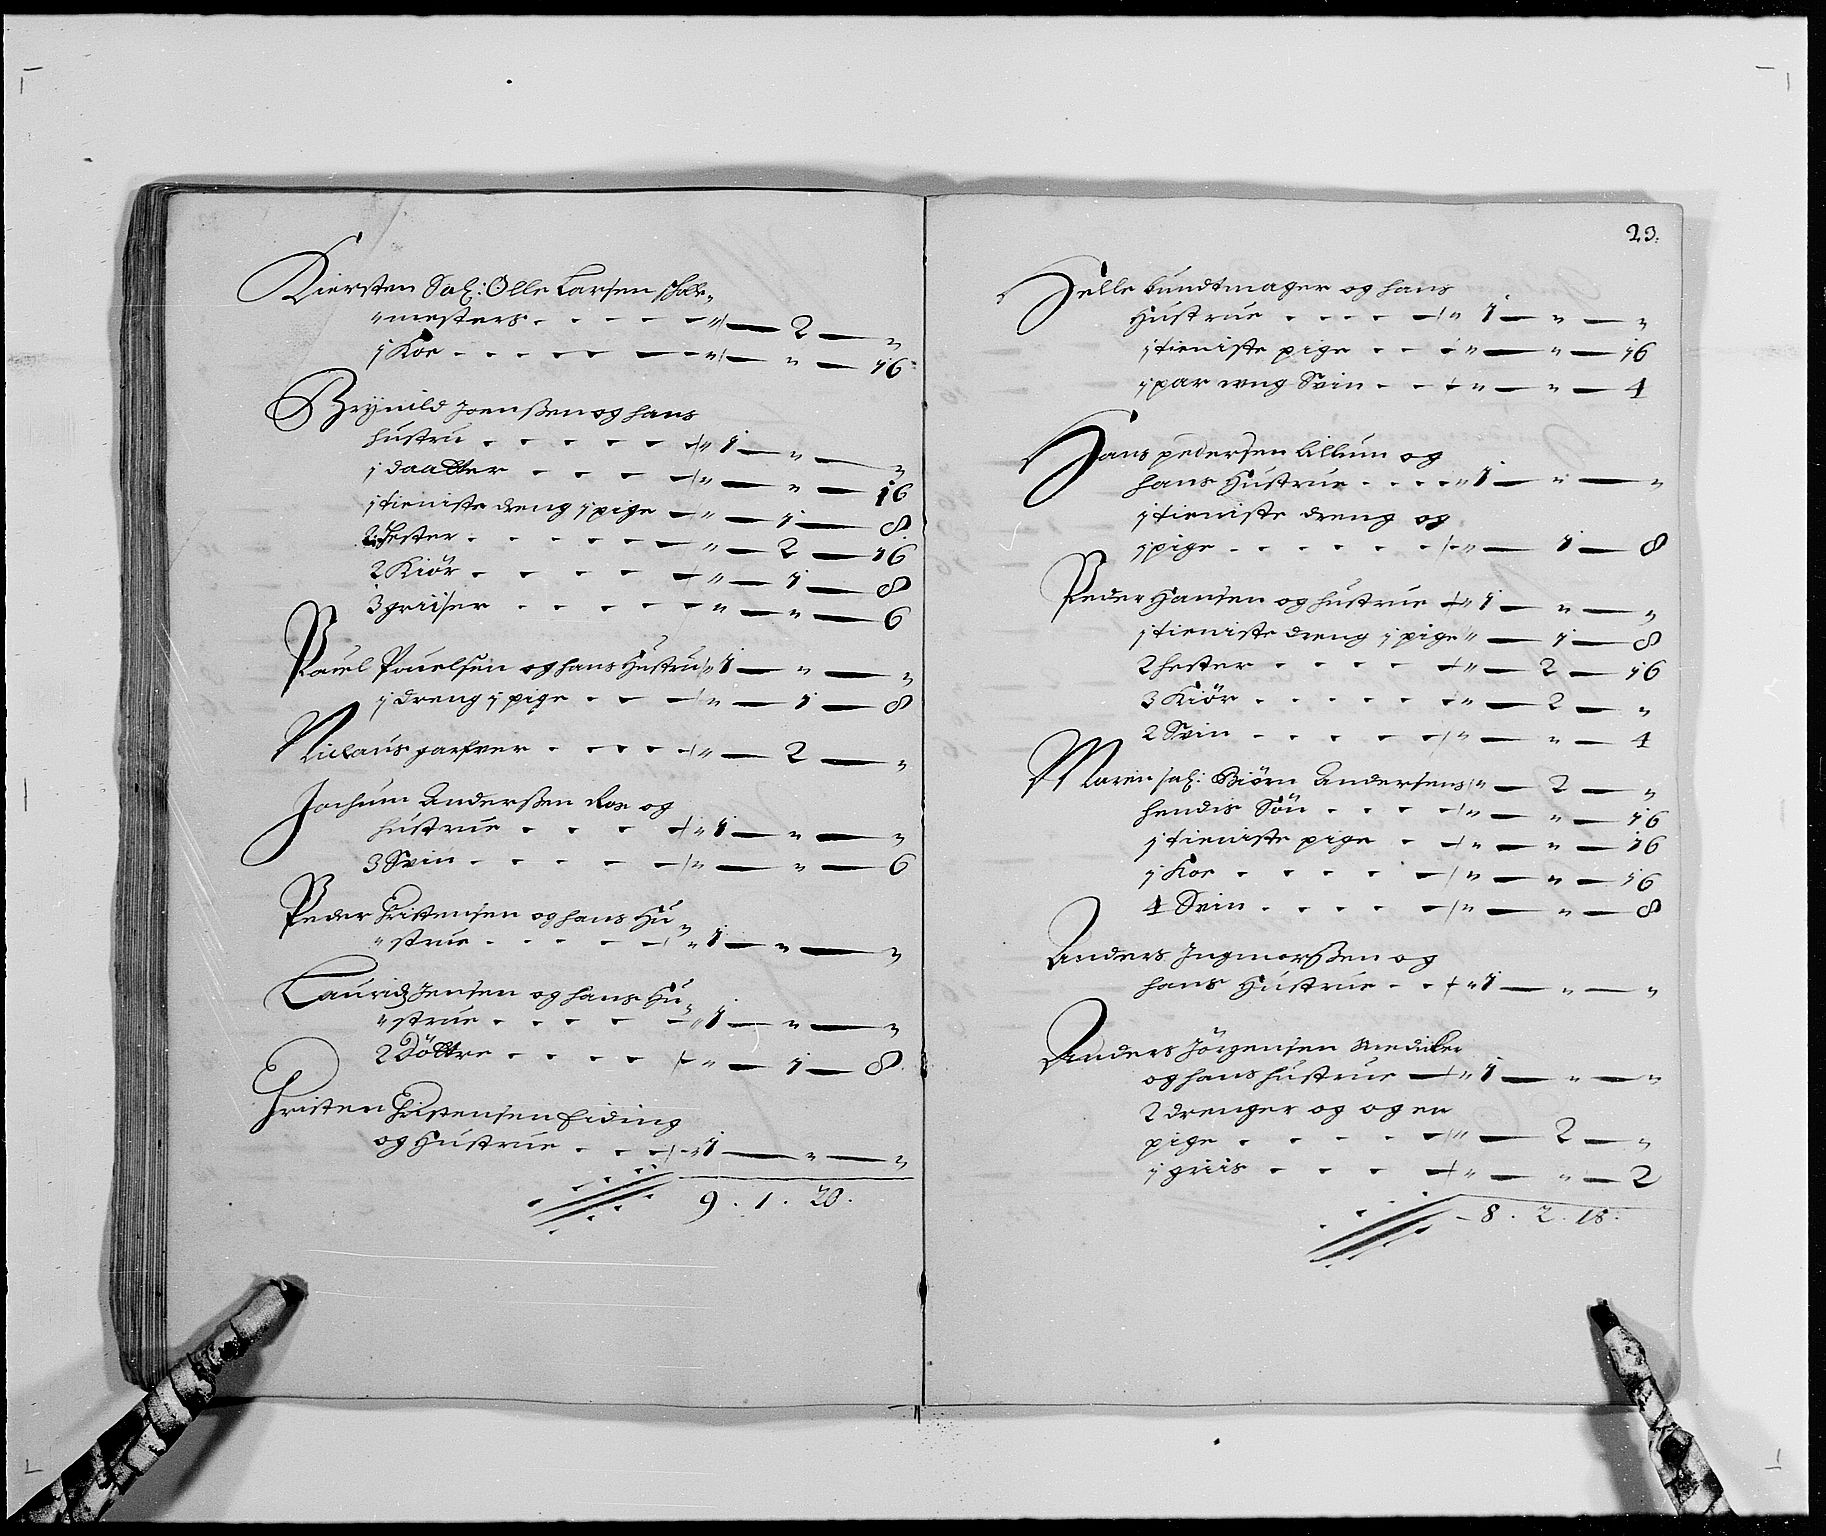 Kiersten Sal: Olle Larsen skole„
„mesters. - - - - „ — 2 — „
1 Koe - - - - - „ — „ — 16
Brynild Joenßen og hans
hustru - - - - - „ 1 — „ — „
1 daatter - - - - „ — „ — 16
1 tieniste dreng 1 pige — „ — 1 — 8.
2 Hester - - - - - „ — 2 — 16
2 Kiör - - - - - „ — 1 — 8
3 griiser - - - - - „ — „ — 6
Pouel Pouelsen og hans Hustru „ 1 — „ — „
1 dreng 1 pige - - - „ — 1 — 8
Niclaus garfver - - - - „ — 2 — „
Jochum Anderßen Roe og
hustrue - - - - „ 1 — „ — „
3 Svin - - - - - „ — „ — 6
Peder Christensen og hans Hu„
„strue - - - - - „ 1 — „ — „
Lauridz Jensen og hans Hu„
„strue - - - - - „ 1 — „ — „
2 Döttre - - - - „ — 1 — 8.
Christen Christensen Eiding
og Hustrue - - - „ 1 — „ — „
9 . 1 . 20.
23.
Helle bundtmager og hans
Hustrue - - - - „ 1 — „ — „
1 tieniste pige - - - „ — „ — 16
1 par ung Svin - - - „ — „ — 4
Hans pedersen Lillum og
hans Hustrue - - - - „ 1 — „ — „
1 tieniste dreng og
1 pige - - - - - - „ — 1 — 8
Peder Hansen og hustrue „ 1 — „ — „
1 tieniste dreng 1 pige „ — 1 — 8
2 hester - - - - - „ — 2 — 16
3 Kiör - - - - - „ — 2 — „
2 Svin - - - - - „ — „ — 4
Maren sal: Biörn Andersens „ — 2 — „
hendis Sön - - - - „ — „ — 16
1 tieniste pige - - „ — „ — 16
1 Koe - - - - - „ — „ — 16
4 Svin - - - - - „ — „ — 8
Anders Ingmorßen og
hans Hustrue - - - „ 1 — „ — „
Anders Jörgensen Snedicker
og hans hustrue — „ 1 — „ — „
2 drenger og og en
pige - - - - - „ — 2 — „
1 griis - - - - „ — „ — 2
8 . 2 . 18.